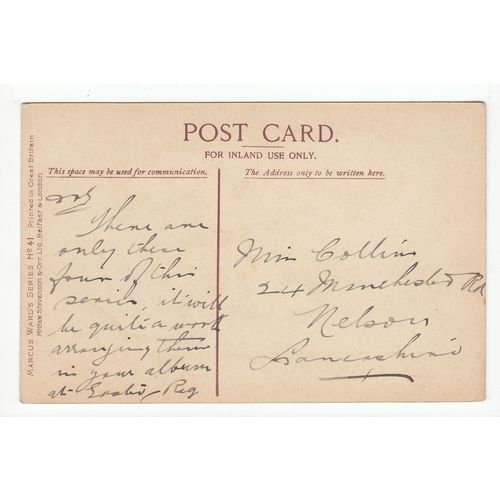 POST CARD.
FOR INLAND USE ONLY.
This space may be used for communication.
The Address only to be written here.
MARCUS WARD'S SERIES Nº 41 Printed in Great Britain
McCaw Stevenson & Orr Ltd. Belfast & London.
There are
only these
four of this
series, it will
be quite a work
arranging them
in your album
at Easter Reg
Miss Collins
24 Manchester Rd
Nelson
Lancashire